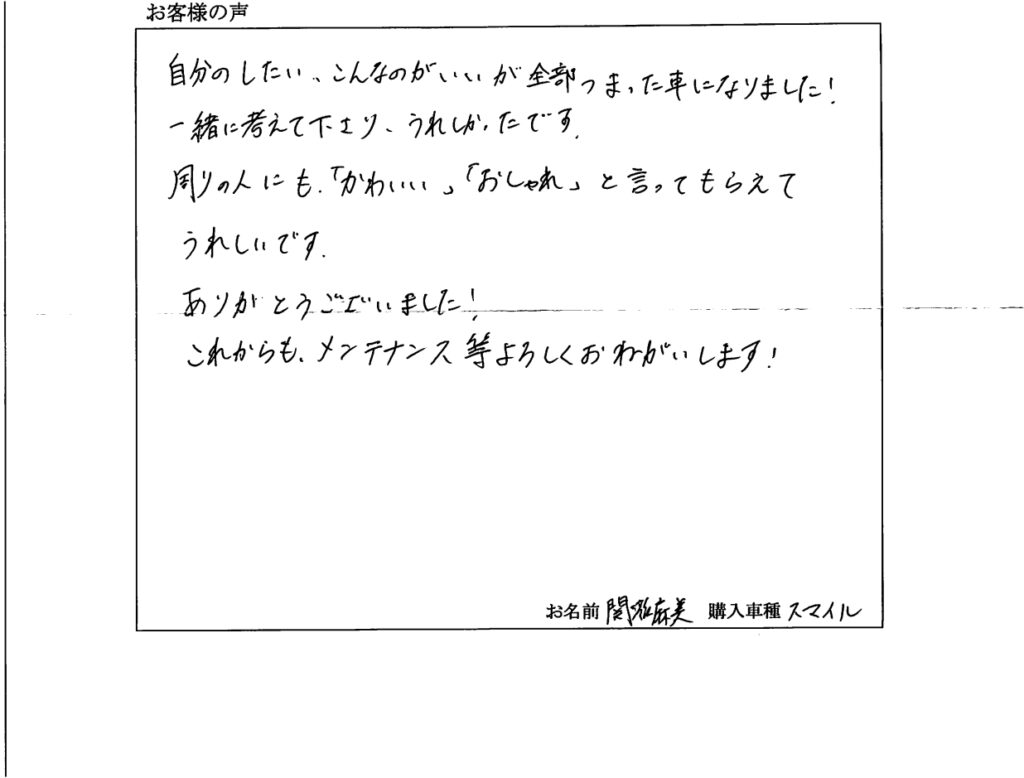 お客様の声
自分のしたい、こんなのがいいが全部つまった車になりました!
一緒に考えて下さり、うれしかったです.
周りの人にも、「かわいい」「おしゃれ」と言ってもらえて
うれしいです.
ありがとうございました!
これからも、メンテナンス等よろしくおねがいします!
お名前 関 麻美 購入車種 スマイル